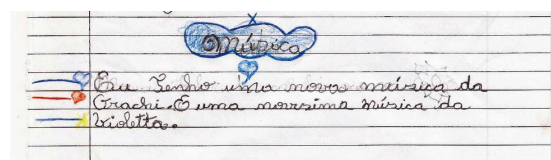 Música
Eu Tenho uma nova música da
Grachi. E uma novssima música da
Violetta.